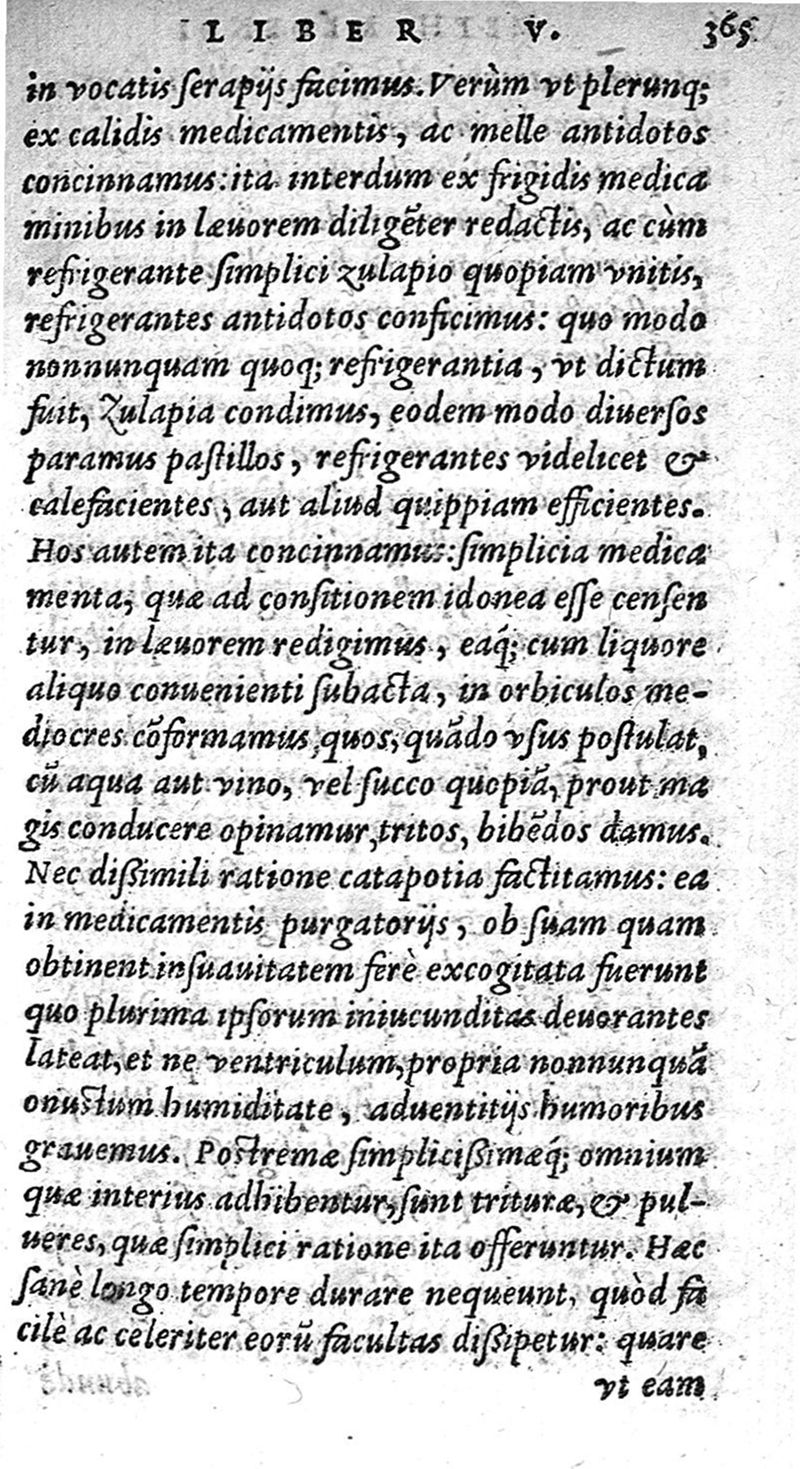 LIBER V. 365
in vocatis serapijs facimus. Verùm vt plerunq;
ex calidis medicamentis, ac melle antidotos
concinnamus: ita interdum ex frigidis medica
minibus in læuorem diligẽter redactis, ac cùm
refrigerante simplici zulapio quopiam vnitis,
refrigerantes antidotos conficimus: quo modo
nonnunquam quoq; refrigerantia, vt dictum
fuit, Zulapia condimus, eodem modo diuersos
paramus pastillos, refrigerantes videlicet &
calefacientes, aut aliud quippiam efficientes.
Hos autem ita concinnamus: simplicia medica
menta, quæ ad consitionem idonea esse censen
tur, in læuorem redigimus, eaq́; cum liquore
aliquo conuenienti subacta, in orbiculos me-
diocres cõformamus, quos, quãdo vsus postulat,
cũ aqua aut vino, vel succo quopiã, prout ma
gis conducere opinamur, tritos, bibẽdos damus.
Nec dißimili ratione catapotia factitamus: ea
in medicamentis purgatorijs, ob suam quam
obtinent insuauitatem ferè excogitata fuerunt
quo plurima ipsorum iniucunditas deuorantes
lateat, et ne ventriculum, propria nonnunquã
onustum humiditate, aduentitijs humoribus
grauemus. Postremæ simplicißimæq́; omnium
quæ interius adhibentur, sunt trituræ, & pul-
ueres, quæ simplici ratione ita offeruntur. Hæc
sanè longo tempore durare nequeunt, quòd fa
cilè ac celeriter eorũ facultas dißipetur: quare
vt eam